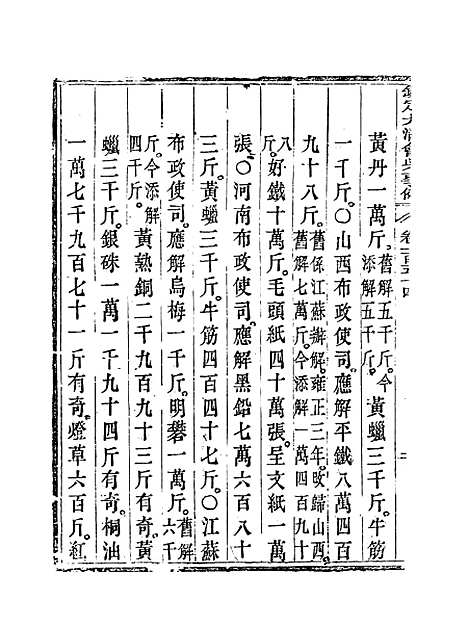 欽定大清會典事例 卷一百五十四 二
黃丹一萬斤。舊解五千斤。今添解五千斤。黃蠟三千斤。牛筋
一千斤。○山西布政使司。應解平鐵八萬四百
九十八斤。舊係江蘇辦解。雍正三年。改歸山西。舊解七萬斤。今添解一萬四百九十
八斤。好鐵十萬斤。毛頭紙四十萬張。呈文紙一萬
張。○河南布政使司。應解黑鉛七萬六百八十
三斤。黃蠟三千斤。牛筋四百四十七斤。○江蘇
布政使司。應解烏梅一千斤。明礬一萬斤。舊解六千
斤。今添解四千斤。黃熟銅二千九百九十三斤有奇。黃
蠟三千斤。銀硃一萬一千九十四斤有奇。桐油
一萬七千九百七十一斤有奇。燈草六百斤。紅